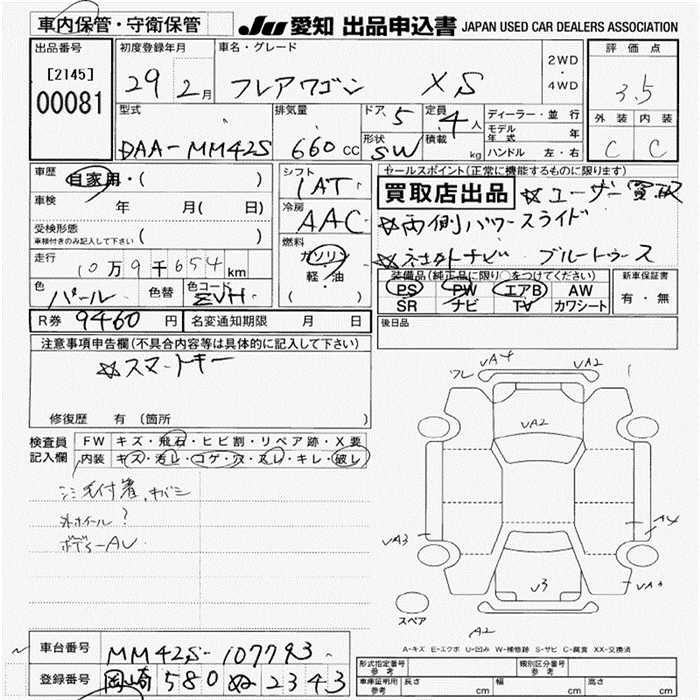 車内保管・守衛保管 JU 愛知 出品申込書 JAPAN USED CAR DEALERS ASSOCIATION
出品番号 初度登録年月 車名・グレード 評価点
[2145] 29 2月 フレアワゴン XS 2WD・4WD 3.5
00081
型式 排気量 ドア 5 定員 4人 ディーラー・並行 外装 内装
DAA-MM42S 660cc 形状 SW 積載 kg モデル年式 年 C C
ハンドル 左・右
車歴 自家用・( ) シフト 1AT セールスポイント(正常に機能するものに限ります)
車検 年 月( 日) 冷房 AAC 買取店出品 ☆ユーザー買取
受検形態 車検付きのみ記入して下さい ( ) 燃料 ガソリン ☆両側パワースライド
走行 10万9千654km 軽・油 ( ) ☆ネオクトナビ ブルートゥース
色 パール 色替 色コード ZVH 装備品(純正品に限り○をつけてください) 新車保証書
PS PW エアB AW 有・無
SR ナビ TV カワシート
R券 9460円 名変通知期限 月 日 後日品
注意事項申告欄(不具合内容等は具体的に記入して下さい)
☆スマートキー
修復歴 有 (箇所 )
検査員記入欄 FW キズ・飛石・ヒビ割・リペア跡・X要
内装 キズ・汚レ・コゲ・穴・スレ・キレ・破レ
毛付着、キバミ
外ホイール?
ボディーAU
フレ UA4 UA2
UA2
UA3 A4
U3 UA3
スペア
A2
A-キズ E-エクボ U-凹み W-補修跡 S-サビ C-腐食 XX-交換済
車台番号 MM42S-107793 形式指定番号 参考 類別区分番号 参考
登録番号 岡崎 580 ぬ 2343 車庫証明用 参考 長さ cm 幅 cm 高さ cm